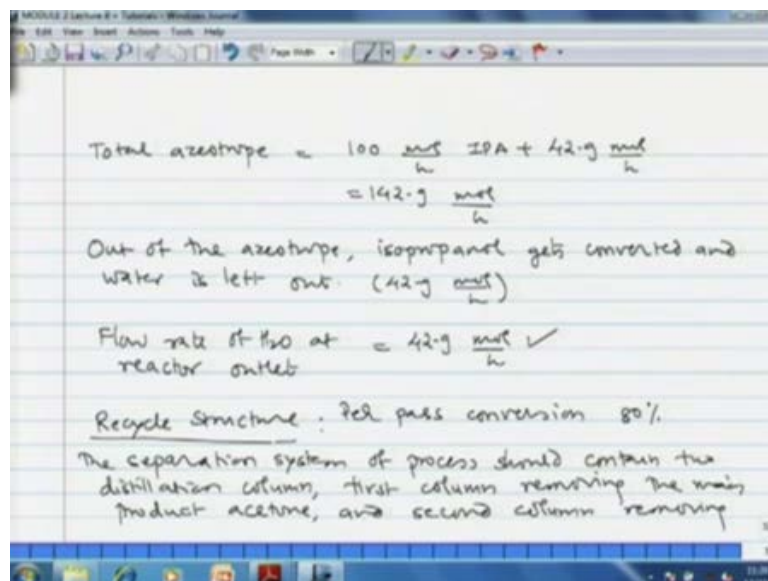 MODULE 2 Lecture 8 + Tutorials - Windows Journal
File Edit View Insert Actions Tools Help
Page Width
Total azeotrope = 100 mol/h IPA + 42.9 mol/h
= 142.9 mol/h
Out of the azeotrope, isopropanol gets converted and
water is left out. (42.9 mol/h)
Flow rate of H2O at = 42.9 mol/h ✓
reactor outlet
Recycle Structure : Per pass conversion 80%
The separation system of process should contain two
distillation column, first column removing the main
product acetone, and second column removing